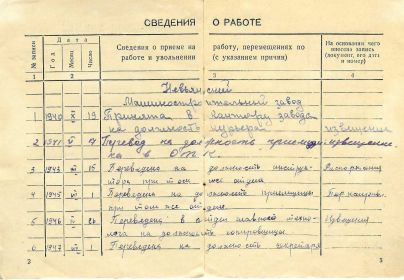 СВЕДЕНИЯ О РАБОТЕ
№ записи
Дата
Год
Месяц
Число
Сведения о приеме на работу и увольнении
работу, перемещениях по (с указанием причин)
На основании чего внесена запись (документ, его дата и номер)
1 2 3 4
Невьянский
Машиностроительный завод
1 1940 19 Принята в контору завода
на должность курьера извещение
2 1941 7 Перевод на должность приемщи- извещение
ка в ОТК
3 1943 15 Переведена на должность
при том же отделе
4 1945 1 Переведена на должность приемщицы
при том же отделе
5 1946 26 Переведена в отдел главного техно-
лога на должность копировщицы
6 1947 1 Переведена на должность секретаря
2 3